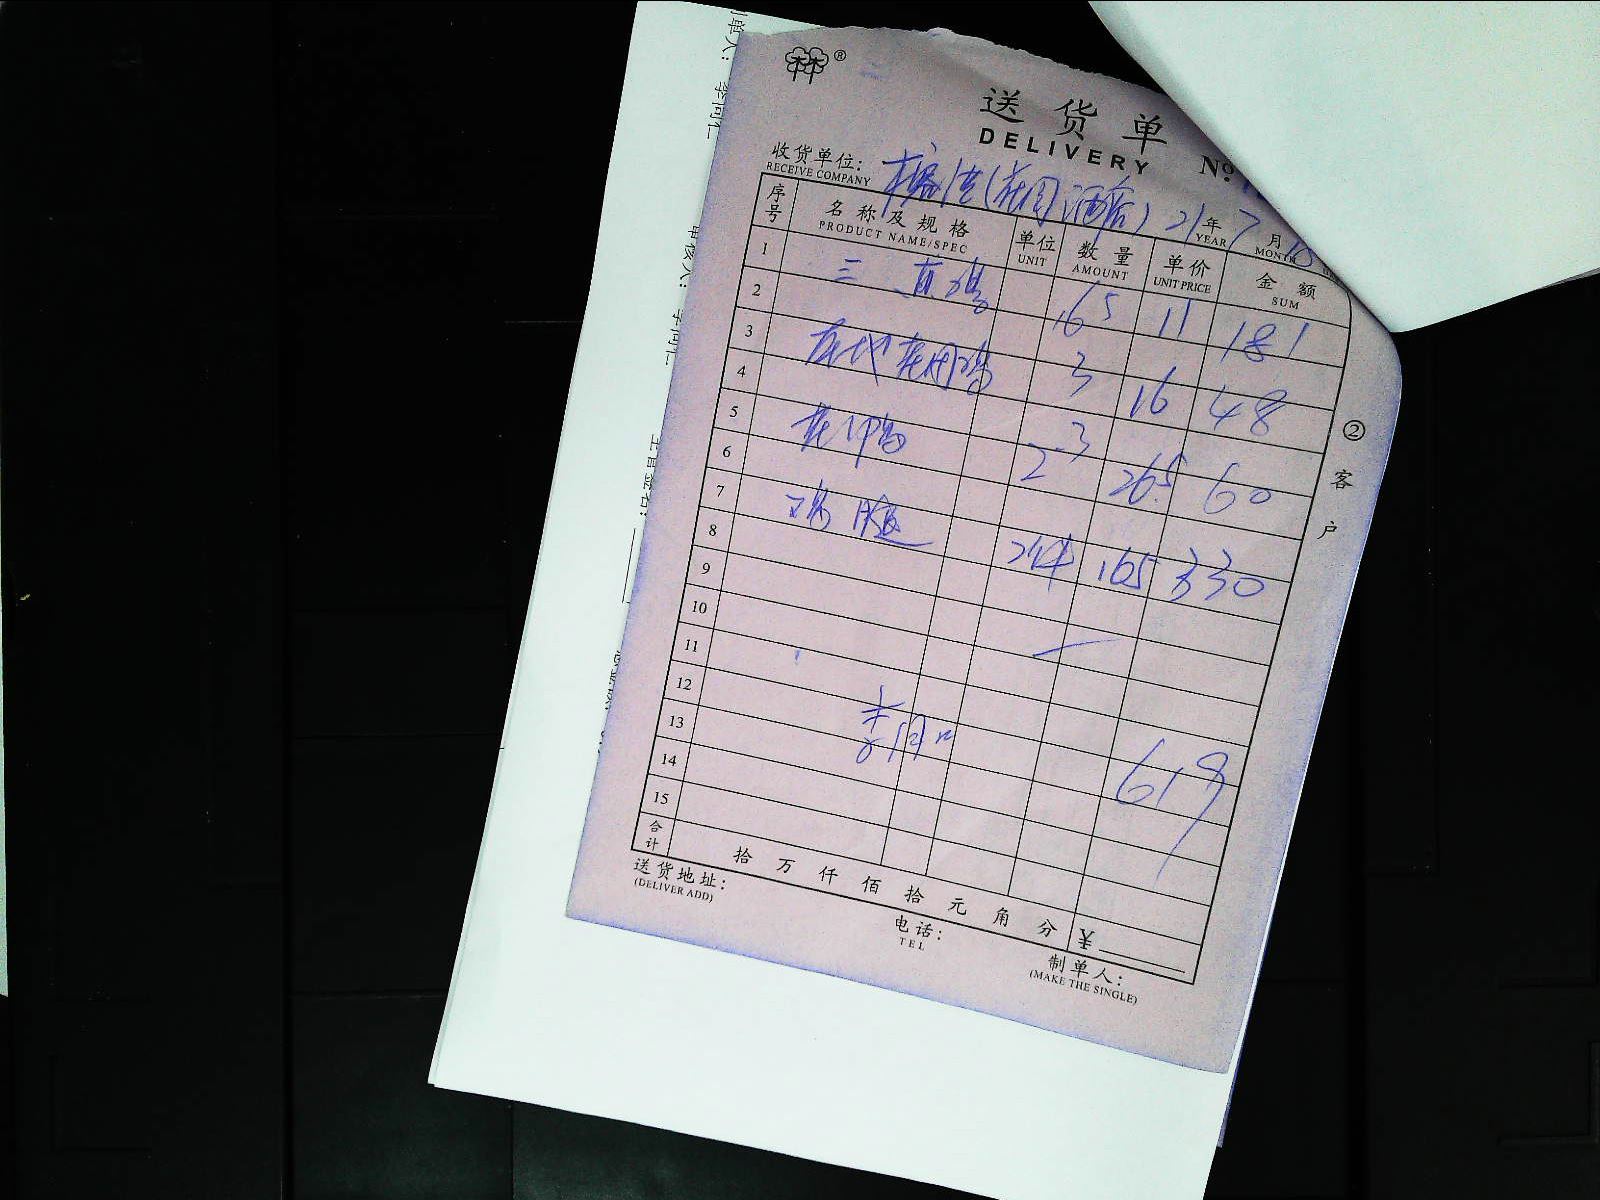 ®
送货单
DELIVERY
No
收货单位：
RECEIVE COMPANY
21年7月
YEAR MONTH
序号 名称及规格 单位 数量 单价 金额
PRODUCT NAME/SPEC UNIT AMOUNT UNIT PRICE SUM
1 三黄鸡 16.5 11 181
2
3 3 16 48
4
5 2.3 265 60
6
7 鸡腿 2件 165 330
8
9
10
11
12
13 李同仁 619
14
15
合计 拾 万 仟 佰 拾 元 角 分 ¥
送货地址：
(DELIVER ADD)
电话：
TEL
制单人：
(MAKE THE SINGLE)
②客户
李同仁
审核人： 李同仁